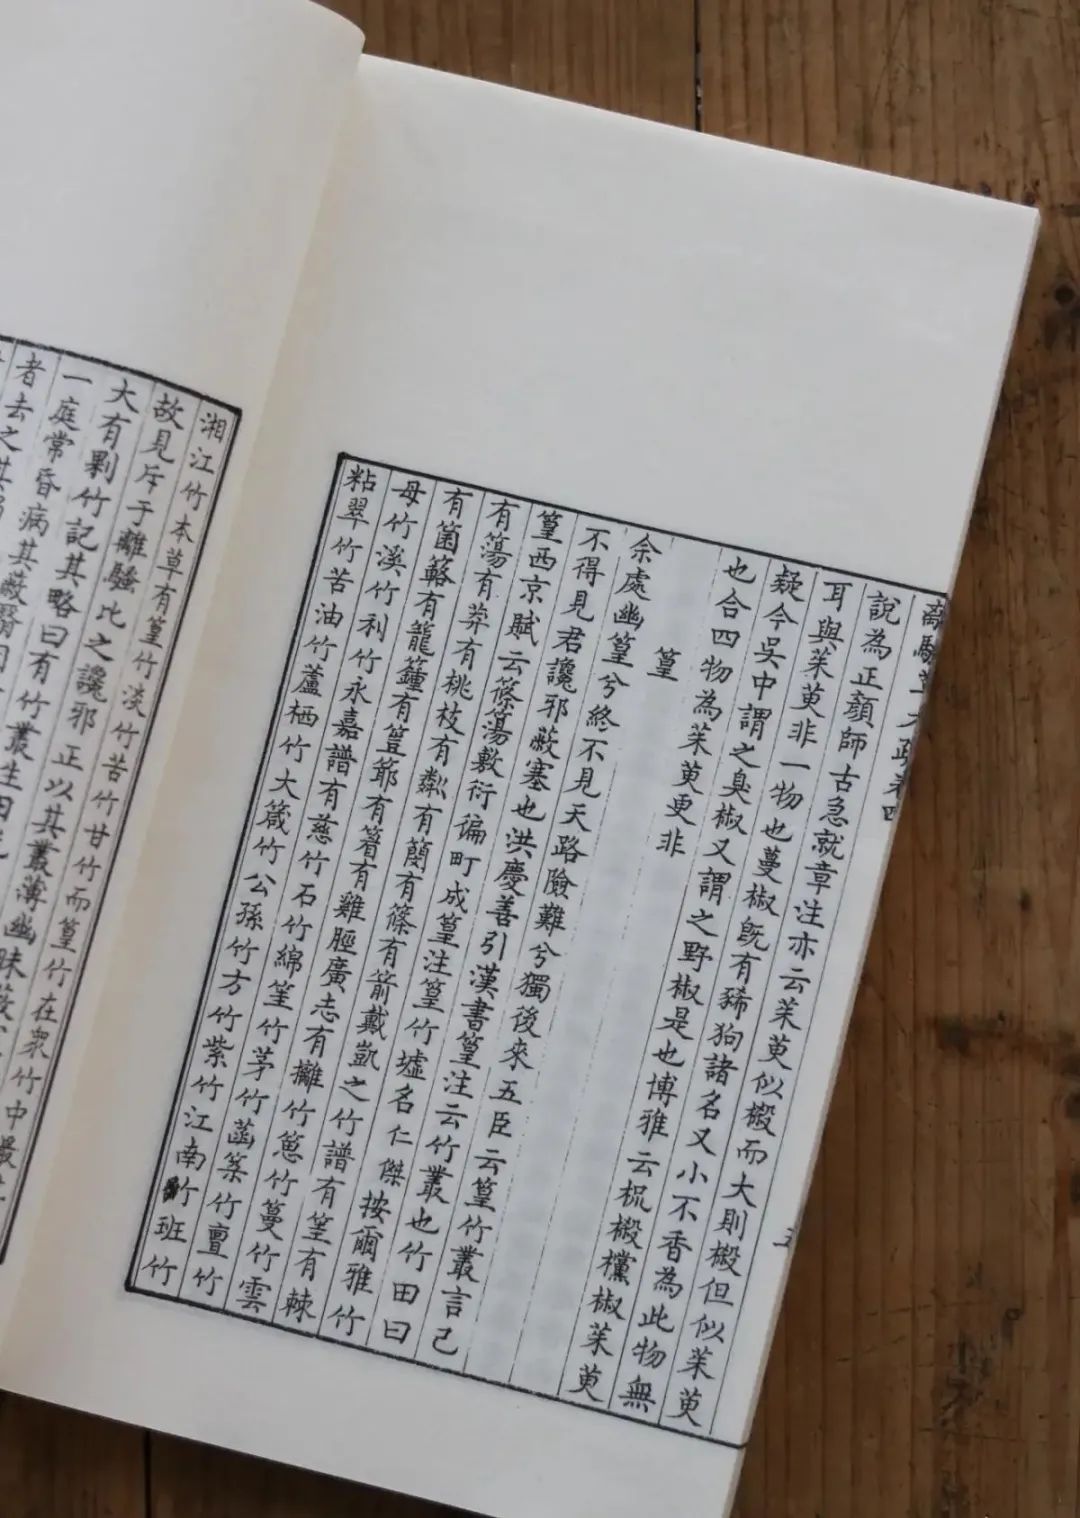 離騷草木疏卷四
說為正顏師古急就章注亦云茱萸似樧而大則樧但似茱萸
耳與茱萸非一物也蔓椒既有豨狗諸名又小不香為此物無
疑今吳中謂之臭椒又謂之野椒是也博雅云梔樧欓椒茱萸
也合四物為茱萸更非
篁
余處幽篁兮終不見天路險難兮獨後來五臣云篁竹叢言己
不得見君讒邪蔽塞也洪慶善引漢書篁注云竹叢也竹田曰
篁西京賦云篠簜敷衍徧町成篁注篁竹墟名仁傑按爾雅竹
有簜有莽有桃枝有粼有簡有篠有箭戴凱之竹譜有篁有棘
有箘簬有籠籦有有箬有雞脛廣志有竹竹簍竹雲
母竹溪竹利竹永嘉譜有慈竹石竹綿篁竹茅竹菡竹亶竹
粘翠竹苦油竹蘆栖竹大箴竹公孫竹方竹紫竹江南竹班竹
湘江竹本草有篁竹淡竹苦竹甘竹而篁竹在衆竹中最
故見斥于離騷比之讒邪正以其叢薄幽昧蔽
大有剿竹記其略曰有竹叢生曰
一庭常昏病其蔽翳
者去之其